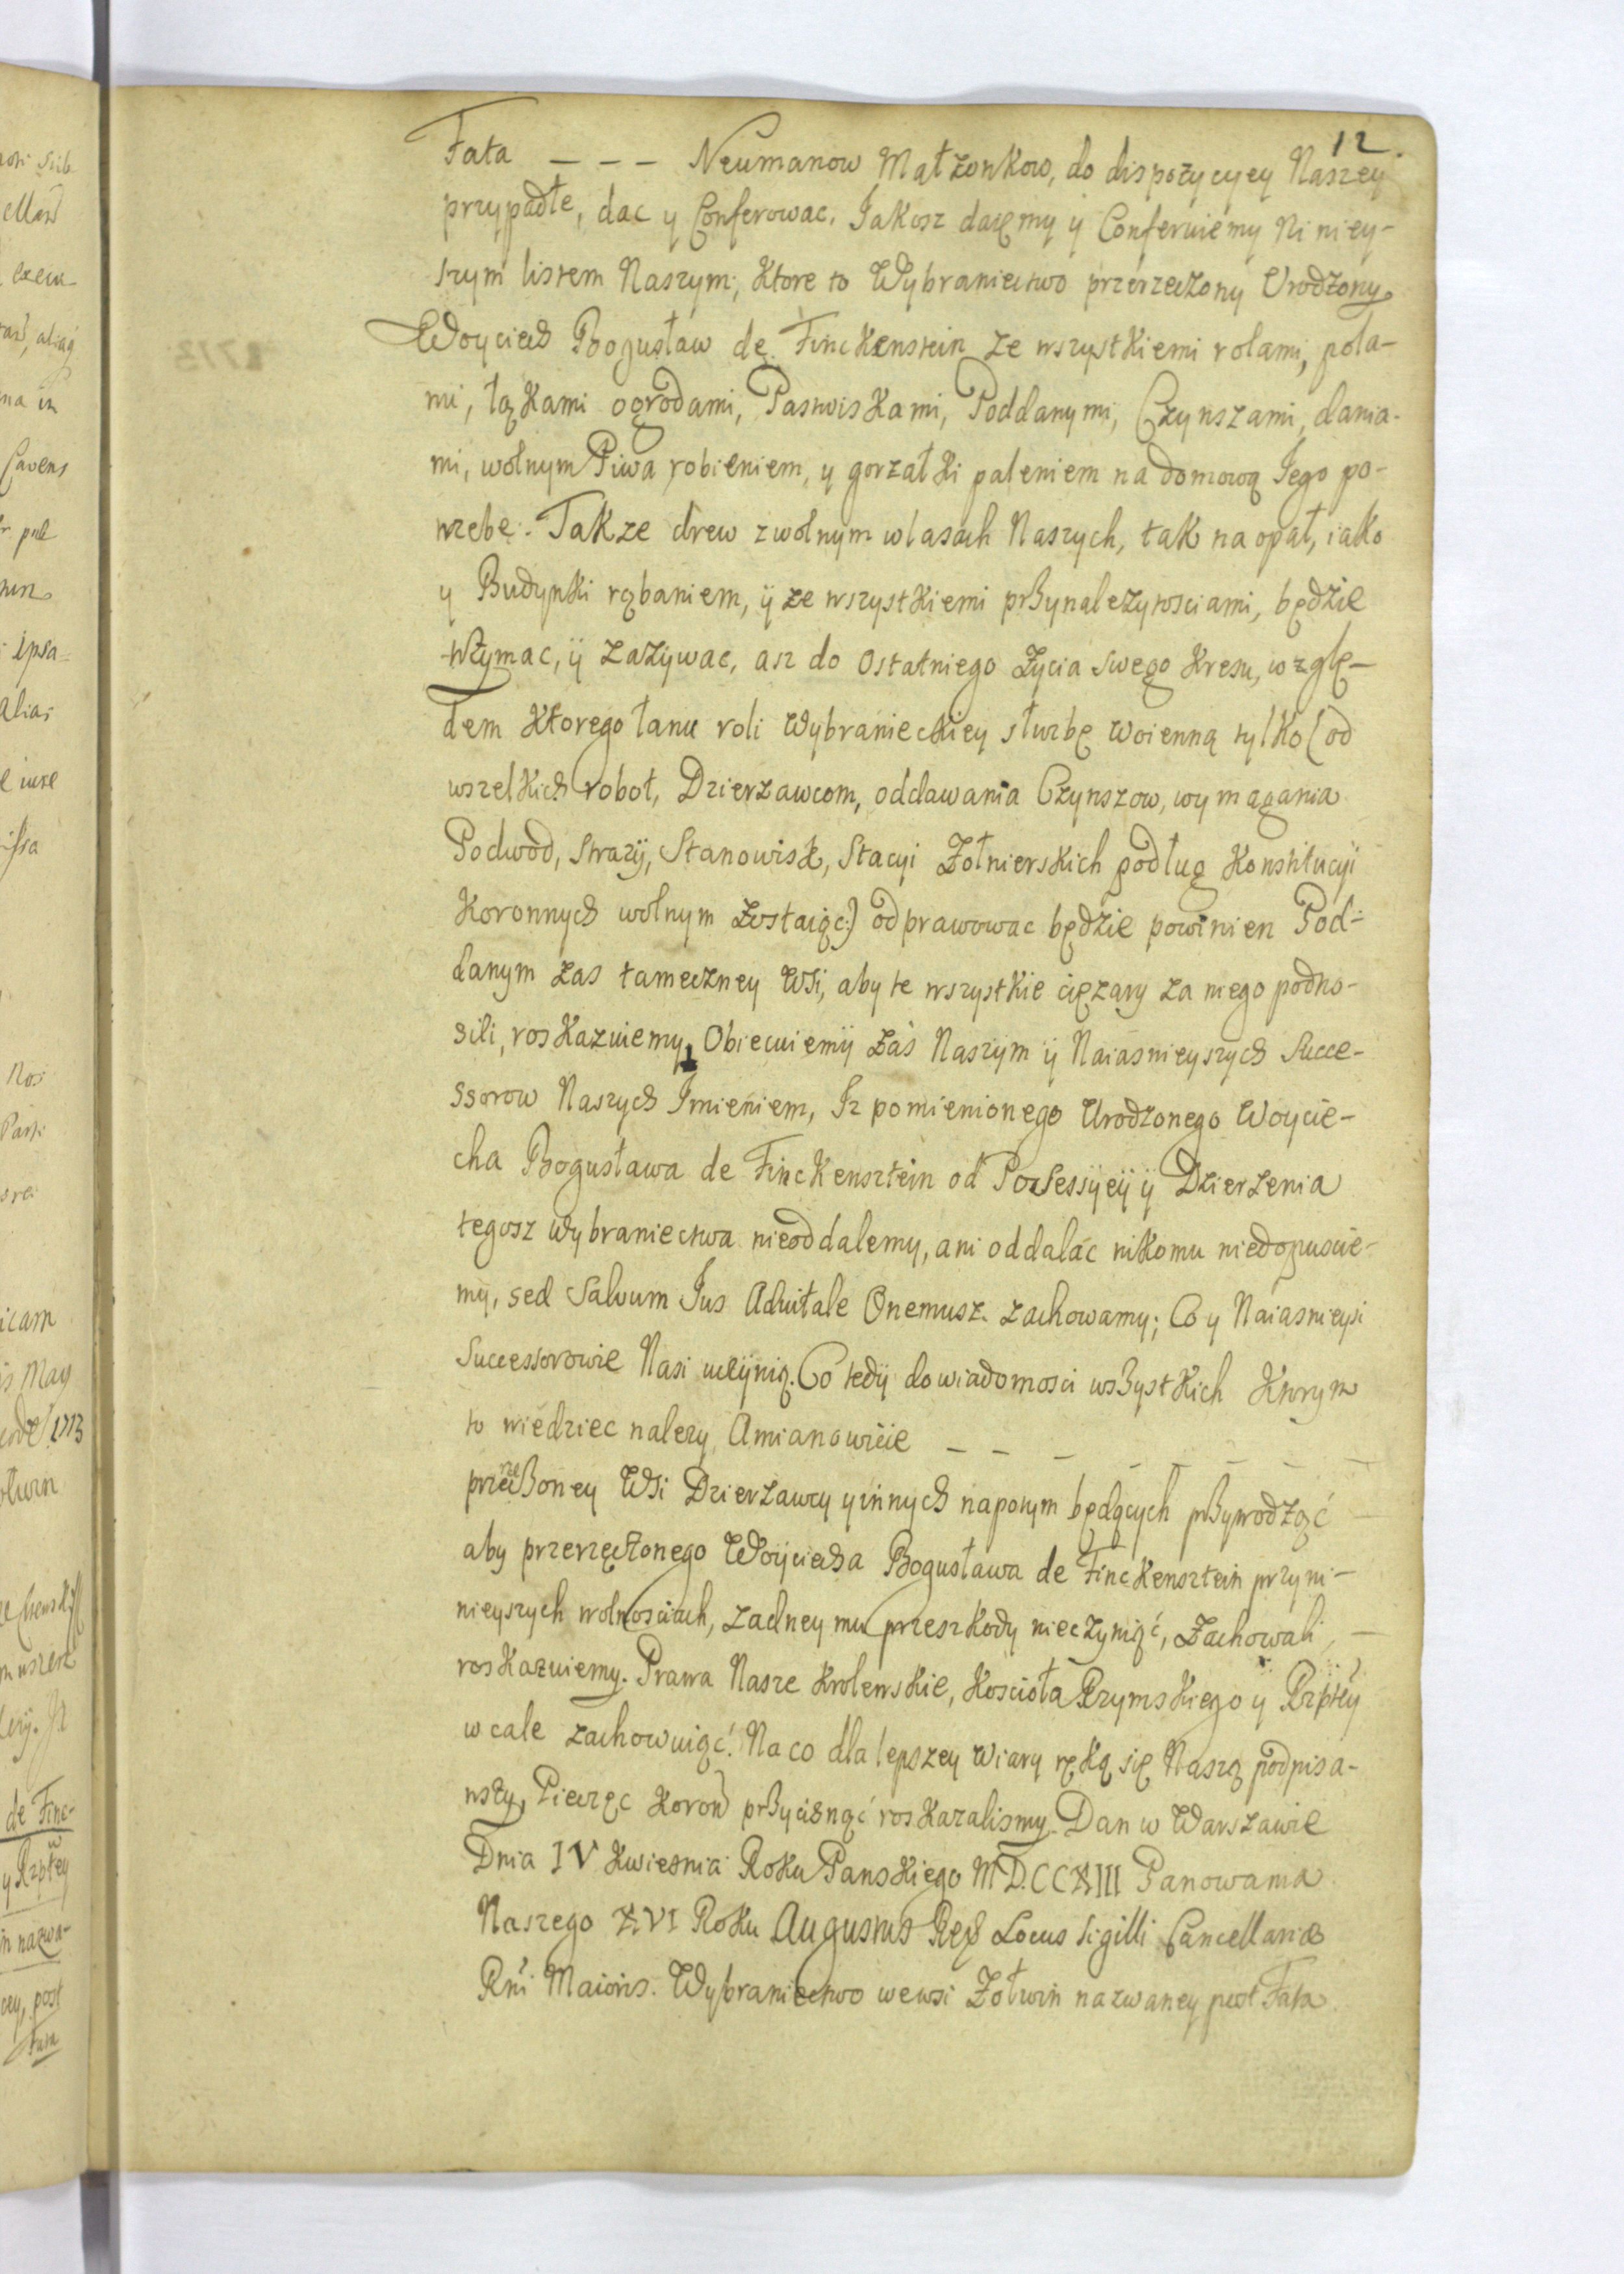 12.
Fata _ _ _ Neumanow Małzonkow, do dispozycyey Naszey
przypadłe, dac y Conferowac, Jakosz daięmy ÿ Conferuiemy Niniey-
szym listem Naszym; Ktore to Wybraniectwo przerzeczony Urodzony
Woyciech Bogusław de Finckenstein ze wszystkiemi rolami, pola-
mi, łąkami ogrodami, Pastwiskami, Poddanymi, Czynszami, dania-
mi, wolnym Piwa robieniem, y gorzałki paleniem na domową Jego po-
trzebe. Takze drew zwolnym w lasach Naszych, tak na opał, iako
y Budynki rąbaniem, ÿ ze wszystkiemi przynaleznosciami, będzie
trzymac, ÿ zazywac, asz do Ostatniego Zycia Swego Kresu, wzglę-
dem Ktorego łanu roli Wybranieckiey słuzbę Woienną tylko (od
wszelkich robot, Dzierzawcom, oddawania Czynszow, wymagania
Podwod, Strazÿ, Stanowisk, Stacyi Zołnierskich podług Konstitucyi
Koronnych wolnym Zostaiąc:) odprawowac będzie powinien Pod-
danym zas tameczney Wsi, aby te wszystkie cięzary za niego podno-
sili, roskazuiemy. Obiecuiemÿ Zaś Naszym ÿ Naiasnieyszych Succe-
ssorow Naszych Jmieniem, Jz pomienionego Urodzonego Woycie-
cha Bogusława de Finckensztein od Possessÿeÿ ÿ Dzierzenia
tegosz Wybraniectwa nieoddalemy, ani oddalac nikomu niedopuscie-
my, sed Salvum Jus Advitale Onemusz. zachowamy; Co y Naiasnieysi
Successorowie Nasi uczÿnią. Co tedÿ do wiadomosci wszystkich Ktorym
to wiedziec nalezy, Amianowicie _ _ _ _ _ _ _ _
przerzeczoney Wsi Dzierzawcy y innych napotym będących przywodząć
aby przerzęczonego Woÿciecha Bogusława de Finckensztein przy ni-
nieyszych wolnosciach, zadney mu przeszkody nieczyniąć, Zachowali,
roskazuiemy. Prawa Nasze Krolewskie, Koscioła Rzymskiego y Rzpłtey
w cale zachowuiąć. Na co dla lepszey wiary ręką się Naszą podpisa-
wszy, Pieczęc Koron przycisnąć roskazalismy. Dan w Warszawie
Dnia IV Kwietnia Roku Panskiego MD.CCXIII Panowania
Naszego XVI Roku Augustus Rex Locus Sigilli Cancellariæ
Rni Maioris. Wybraniectwo wewsi Zołwin nazwaney post Fata